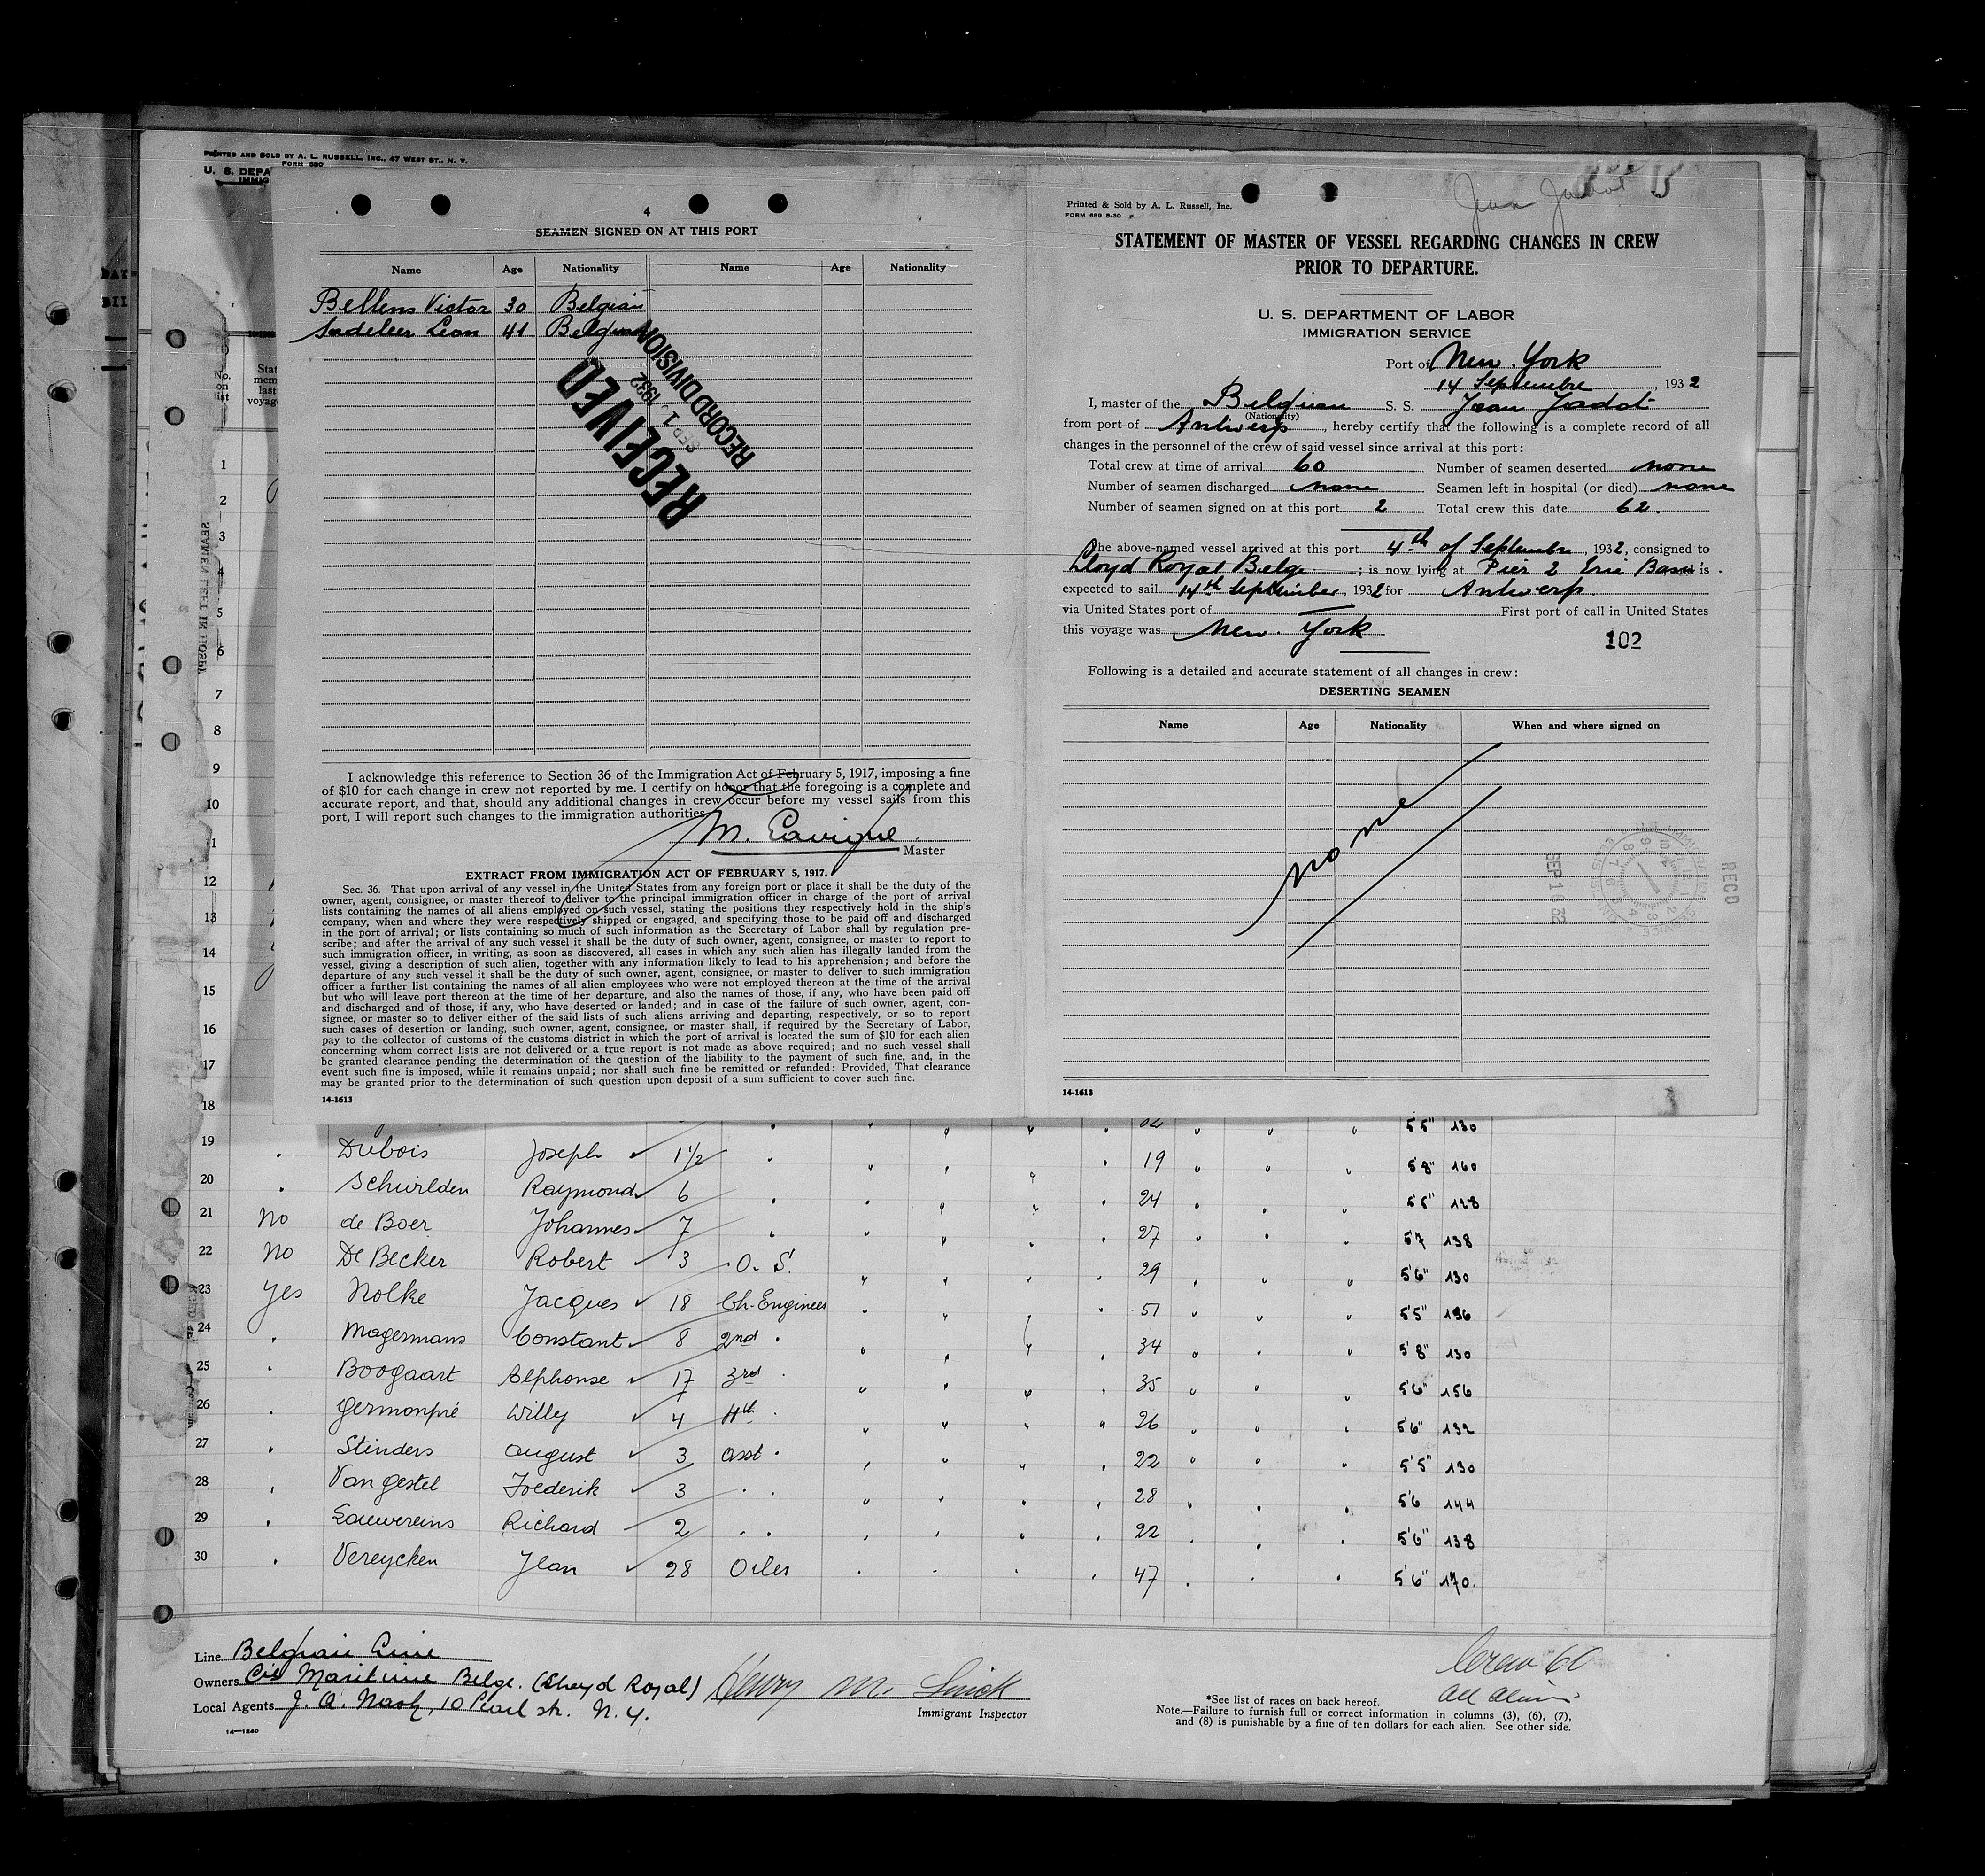 PRINTED AND SOLD BY A. L. RUSSELL, INC., 47 WEST ST., N. Y.
FORM 680
U. S. DEPA
IMMIG
4
SEAMEN SIGNED ON AT THIS PORT
Name Age Nationality Name Age Nationality
Bellens Victor 30 Belgian
Sadeleer Leon 41 Belgian
RECEIVED
SEP 1 1932
RECORD DIVISION
I acknowledge this reference to Section 36 of the Immigration Act of February 5, 1917, imposing a fine
of $10 for each change in crew not reported by me. I certify on honor that the foregoing is a complete and
accurate report, and that, should any additional changes in crew occur before my vessel sails from this
port, I will report such changes to the immigration authorities.
M.
Master
EXTRACT FROM IMMIGRATION ACT OF FEBRUARY 5, 1917.
Sec. 36. That upon arrival of any vessel in the United States from any foreign port or place it shall be the duty of the
owner, agent, consignee, or master thereof to deliver to the principal immigration officer in charge of the port of arrival
lists containing the names of all aliens employed on such vessel, stating the positions they respectively hold in the ship's
company, when and where they were respectively shipped or engaged, and specifying those to be paid off and discharged
in the port of arrival; or lists containing so much of such information as the Secretary of Labor shall by regulation pre-
scribe; and after the arrival of any such vessel it shall be the duty of such owner, agent, consignee, or master to report to
such immigration officer, in writing, as soon as discovered, all cases in which any such alien has illegally landed from the
vessel, giving a description of such alien, together with any information likely to lead to his apprehension; and before the
departure of any such vessel it shall be the duty of such owner, agent, consignee, or master to deliver to such immigration
officer a further list containing the names of all alien employees who were not employed thereon at the time of the arrival
but who will leave port thereon at the time of her departure, and also the names of those, if any, who have been paid off
and discharged and of those, if any, who have deserted or landed; and in case of the failure of such owner, agent, con-
signee, or master so to deliver either of the said lists of such aliens arriving and departing, respectively, or so to report
such cases of desertion or landing, such owner, agent, consignee, or master shall, if required by the Secretary of Labor,
pay to the collector of customs of the customs district in which the port of arrival is located the sum of $10 for each alien
concerning whom correct lists are not delivered or a true report is not made as above required; and no such vessel shall
be granted clearance pending the determination of the question of the liability to the payment of such fine, and, in the
event such fine is imposed, while it remains unpaid; nor shall such fine be remitted or refunded: Provided, That clearance
may be granted prior to the determination of such question upon deposit of a sum sufficient to cover such fine.
14-1613
Jean Jadot
Printed & Sold by A. L. Russell, Inc.
FORM 689 8-30
STATEMENT OF MASTER OF VESSEL REGARDING CHANGES IN CREW
PRIOR TO DEPARTURE.
U. S. DEPARTMENT OF LABOR
IMMIGRATION SERVICE
Port of New York
14 Septembre, 1932
I, master of the Belgian S. S. Jean Jadot
(Nationality)
from port of Antwerp, hereby certify that the following is a complete record of all
changes in the personnel of the crew of said vessel since arrival at this port:
Total crew at time of arrival 60 Number of seamen deserted none
Number of seamen discharged none Seamen left in hospital (or died) none
Number of seamen signed on at this port 2 Total crew this date 62.
The above-named vessel arrived at this port 4th of Septembre, 1932, consigned to
Lloyd Royal Belge; is now lying at Pier 2 Erie Basin and is
expected to sail 14th September, 1932 for Antwerp.
via United States port of First port of call in United States
this voyage was New York
102
Following is a detailed and accurate statement of all changes in crew:
DESERTING SEAMEN
Name Age Nationality When and where signed on
none
SEP 16 32
RECD
14-1613
1
2
3
4
5
6
7
8
9
10
11
12
13
14
15
16
17
18 5'5" 130
19 Dubois Joseph 1 1/2 19 5'8" 160
20 Schuilden Raymond 6 24 5'5" 128
21 No de Boer Johannes 7 27 5'7 138
22 No De Becker Robert 3 O. S. 29 5'6" 130
23 Yes Nolke Jacques 18 Ch. Engineer 51 5'5" 196
24 Magermans Constant 8 2nd 34 5'8" 130
25 Boogaart Alphonse 17 3rd 35 5'6" 156
26 Germonpré Willy 4 4th 26 5'6" 132
27 Stinders August 3 Asst. 22 5'5" 130
28 Van Gestel Frederik 3 28 5'6 144
29 Lauwereins Richard 2 22 5'6" 138
30 Vereycken Jean 28 Oiler 47 5'6" 170.
Line Belgian Line
Owners Cie Maritime Belge. (Lloyd Royal)
Local Agents J. A. Nash, 10 Pearl str. N. Y.
14—1240
Henry M.
Immigrant Inspector
Crew 60
All Aliens
*See list of races on back hereof.
Note.—Failure to furnish full or correct information in columns (3), (6), (7),
and (8) is punishable by a fine of ten dollars for each alien. See other side.